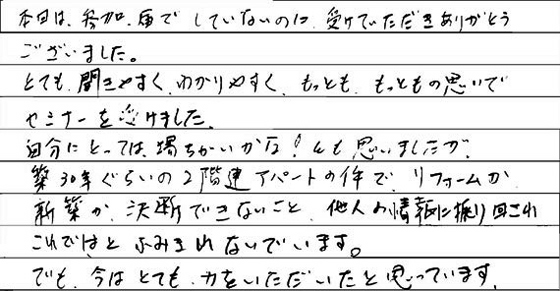 本日は、参加、届でしていないのに、受けていただきありがとう
ございました。
とても、聞きやすく、わかりやすく、もっとも、もっともの思いで
セミナーを受けました、
自分にとっては、場ちがいかな!とも思いましたが、
築30年ぐらいの2階建アパートの件で、リフォームか
新築か、決断できないこと、他人の情報に振り回され
これではとふみきれないでいます。
でも、今はとても、力をいただいたと思っています、